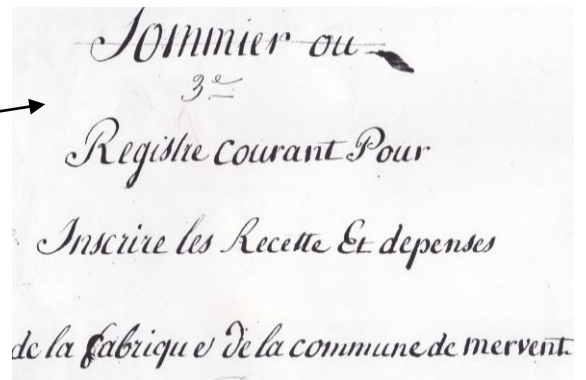 Sommier ou
3e
Registre courant Pour
Inscrire les Recette Et depenses
de la fabrique de la commune de mervent.